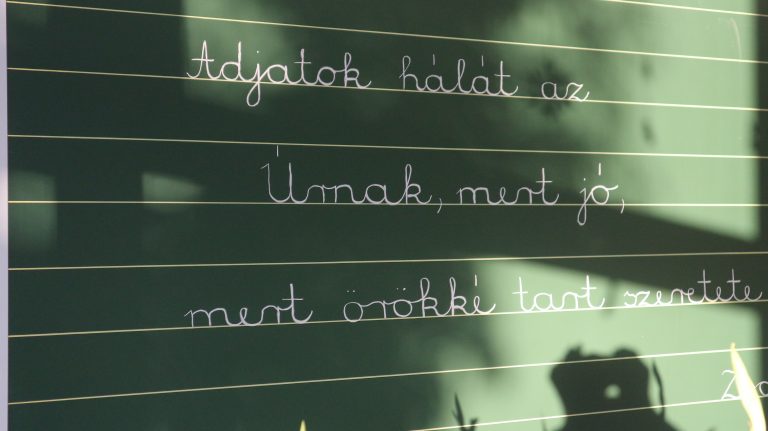 Adjatok hálát az
Úrnak, mert jó,
mert örökké tart szeretete